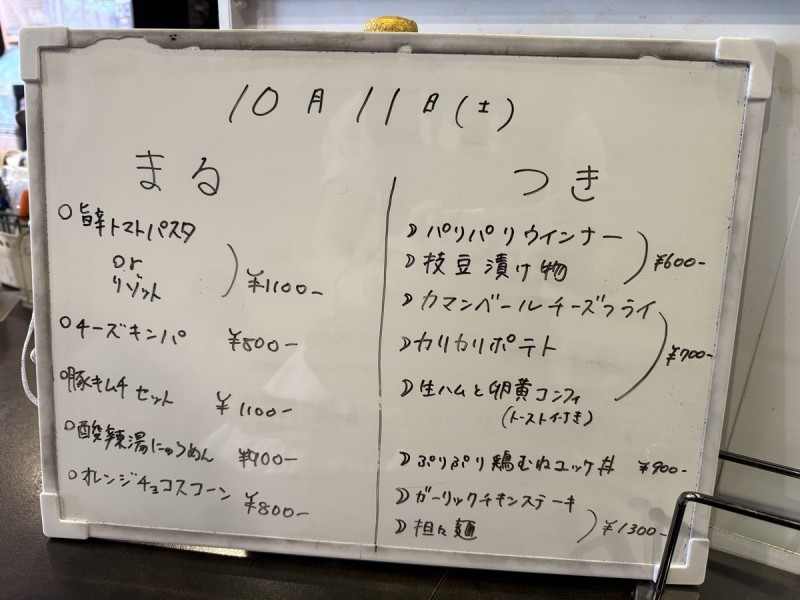 10月11日(土)
まる
○旨辛トマトパスタ
or
リゾット
¥1100-
○チーズキンパ ¥500-
○豚キムチセット ¥1100-
○酸辣湯にゅうめん ¥700-
○オレンジチョコスコーン ¥800-
つき
☽パリパリウインナー
☽枝豆漬け物
¥600-
☽カマンベールチーズフライ
☽カリカリポテト
☽生ハムと卵黄コンフィ
(トースト付き)
¥700-
☽ぷりぷり鶏むねユッケ丼 ¥900-
☽ガーリックチキンステーキ
☽担々麺
¥1300-